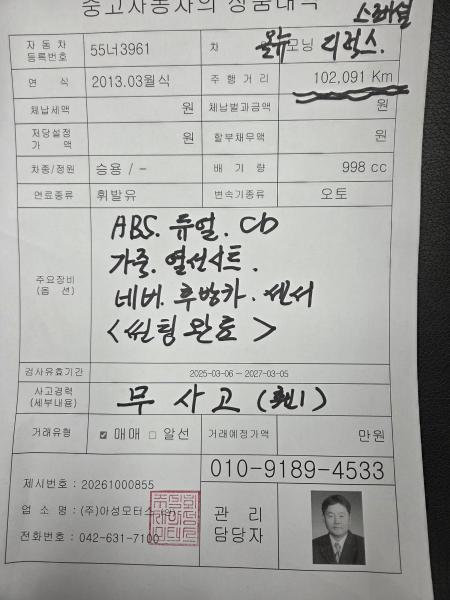 중고자동차의 상품내역
스페셜
자 동 차
등록번호
55너3961
차
올뉴모닝 디럭스.
연 식
2013.03월식
주 행 거 리
102,091 Km
체납세액
원
체납벌과금액
원
저당설정
가 액
원
할부채무액
원
차종/정원
승용 / -
배 기 량
998 cc
연료종류
휘발유
변속기종류
오토
주요장비
(옵 션)
ABS. 듀얼. CD
가죽. 열선시트.
네비. 후방카. 센서
<썬팅완료>
검사유효기간
2025-03-06 ~ 2027-03-05
사고경력
(세부내용)
무 사고
거래유형
매매 알선
거래예정가액
만원
010-9189-4533
제시번호 : 20261000855
업 소 명 : (주)아성모터스
전화번호 : 042-631-7100
관 리
담당자